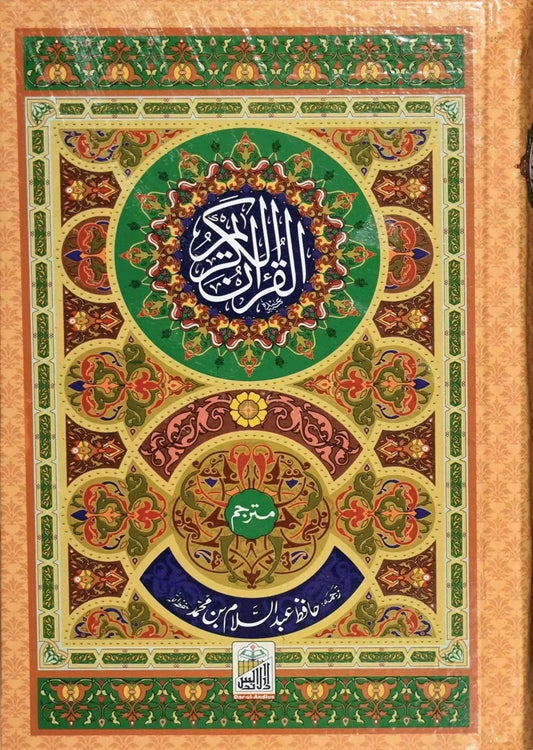 القرآن الكريم
مترجم
ترجمہ: حافظ عبدالسلام بن محمد حفظہ اللہ
دارالاندلس
Dar-ul-Andlus